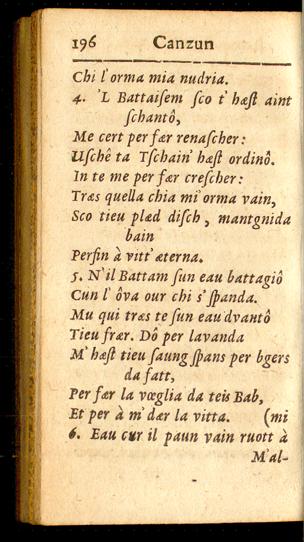 196 Canzun
Chi l'orma mia nudria.
4. 'L Battaiſem ſco t' hæſt aint
ſchantô,
Me cert per fær renaſcher:
Uſchê ta Tſchain' hæſt ordinô.
In te me per fær creſcher:
Træs quella chia mi'orma vain,
Sco tieu plæd diſch, mantgnida
bain
Perfin à vitt' æterna.
5. N'il Battam ſun eau battagiô
Cun l' ôva our chi s' ſpanda.
Mu qui træs te ſun eau dvantô
Tieu frær. Dô per lavanda
M' hæſt tieu ſaung ſpans per bgers
da fatt,
Per fær la vœglia da teis Bab,
Et per à m' dær la vitta. (mi
6. Eau cur il paun vain ruott à
M'al-